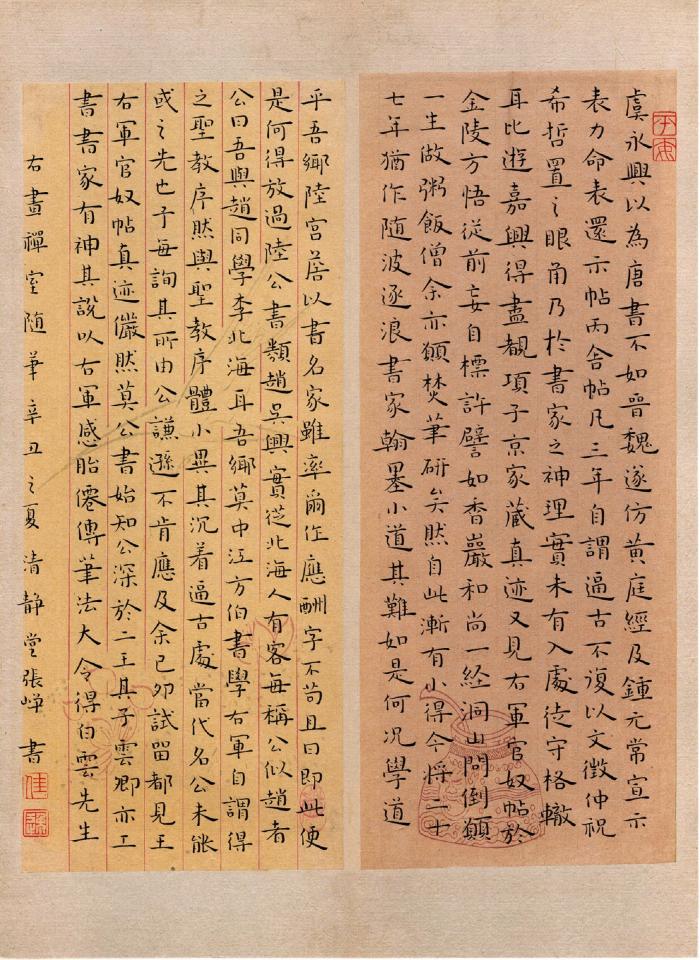 虞永興以為唐書不如晉魏遂仿黃庭經及鍾元常宣示
表力命表還示帖丙舍帖凡三年自謂逼古不復以文徵仲祝
希哲置之眼角乃於書家之神理實未有入處徒守格轍
耳比遊嘉興得盡覩項子京家藏真迹又見右軍官奴帖於
金陵方悟從前妄自標許譬如香巖和尚一經洞山問倒願
一生做粥飯僧余亦願焚筆研矣然自此漸有小得今將二十
七年猶作隨波逐浪書家翰墨小道其難如是何況學道
平吾鄉陸宮詹以書名家雖率爾作應酬字不苟且曰即此便
是何得放過陸公書類趙吳興實從北海人有客每稱公似趙者
公曰吾與趙同學李北海耳吾鄉莫中江方伯書學右軍自謂得
之聖教序然與聖教序體小異其沉着逼古處當代名公未能
或之先也予每詢其所由公謙遜不肯應及余己卯試留都見王
右軍官奴帖真迹儼然莫公書始知公深於二王其子雲卿亦工
書書家有神其說以右軍感胎僊傳筆法大令得白雲先生
右畫禪室隨筆辛丑之夏清靜堂張書